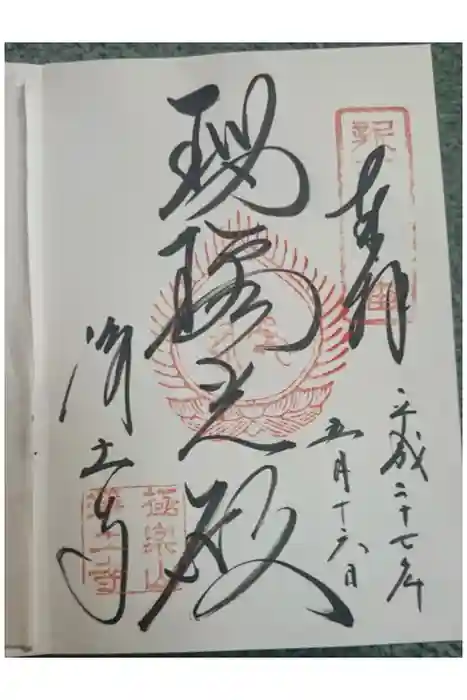 奉拝
平成二十七年
五月十六日
瑠璃光殿
浄土寺
極楽山
浄土寺